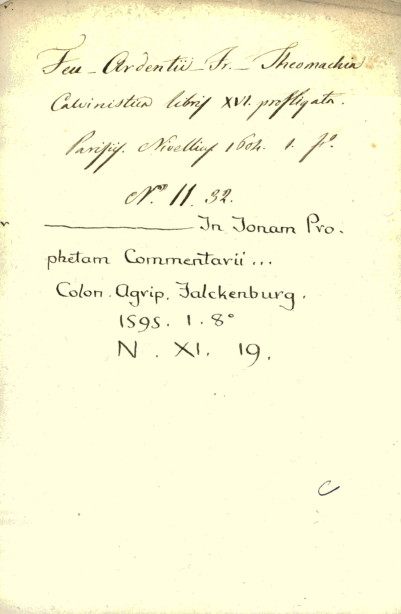 Feu-Ardentii Fr. Theomachia
Calvinistica libris XVI. profligata.
Parisiis. Nivellius 1604. 1. fº.
Nº 11. 32.
———— In Jonam Pro-
phetam Commentarii...
Colon. Agrip. Falckenburg.
1595. 1. 8°
N. XI. 19.
C